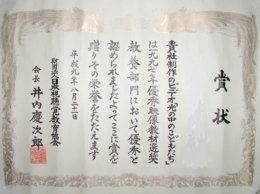 賞状
貴社制作のビデオ光の中のこどもたち
は一九九七年優秀映像教材選奨
教養部門において優秀と
認められましたよってここに賞を
贈りその栄誉をたたえます
平成九年八月二十一日
財団法人日本視聴覚教育協会
会長 井内慶次郎